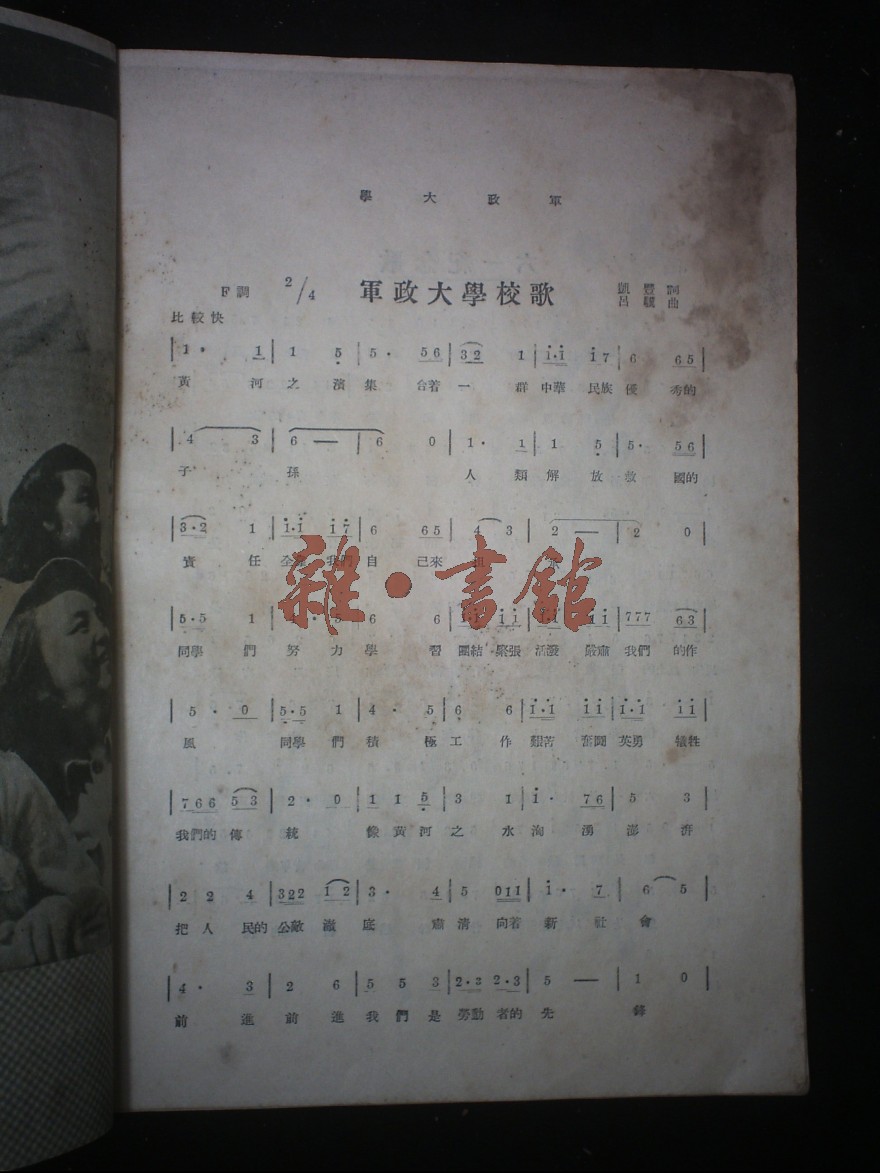 學大政軍
F調 2/4 軍政大學校歌 凱豐詞
呂驥曲
比較快
|1· 1|1 5|5· 56|32 1|1·1 17|6 65|
黃河之濱集合着一群中華民族優秀的
|4 3|6 —|6 0|1· 1|1 5|5· 56|
子孫 人類解放救國的
|3·2 1|1·1 17|6 65|4 3|2 —|2 0|
責任全靠我們自己來
|5·5 1| 5|6 6|1·1 11|1·1 11|777 63|
同學們努力學習團結緊張活潑嚴肅我們的作
|5· 0|5·5 1|4· 5|6 6|1·1 11|1·1 11|
風 同學們積極工作艱苦奮鬪英勇犧牲
|766 53|2· 0|1 1 5|3 1|1· 76|5 3|
我們的傳統 像黃河之水洶湧澎湃
|2 2 4|322 12|3· 4|5 011|1· 7|6 5|
把人民的公敵澈底肅清向着新社會
|4· 3|2 6|5 5 3|2·3 2·3|5 —|1 0|
前進前進我們是勞動者的先鋒
雜·書館